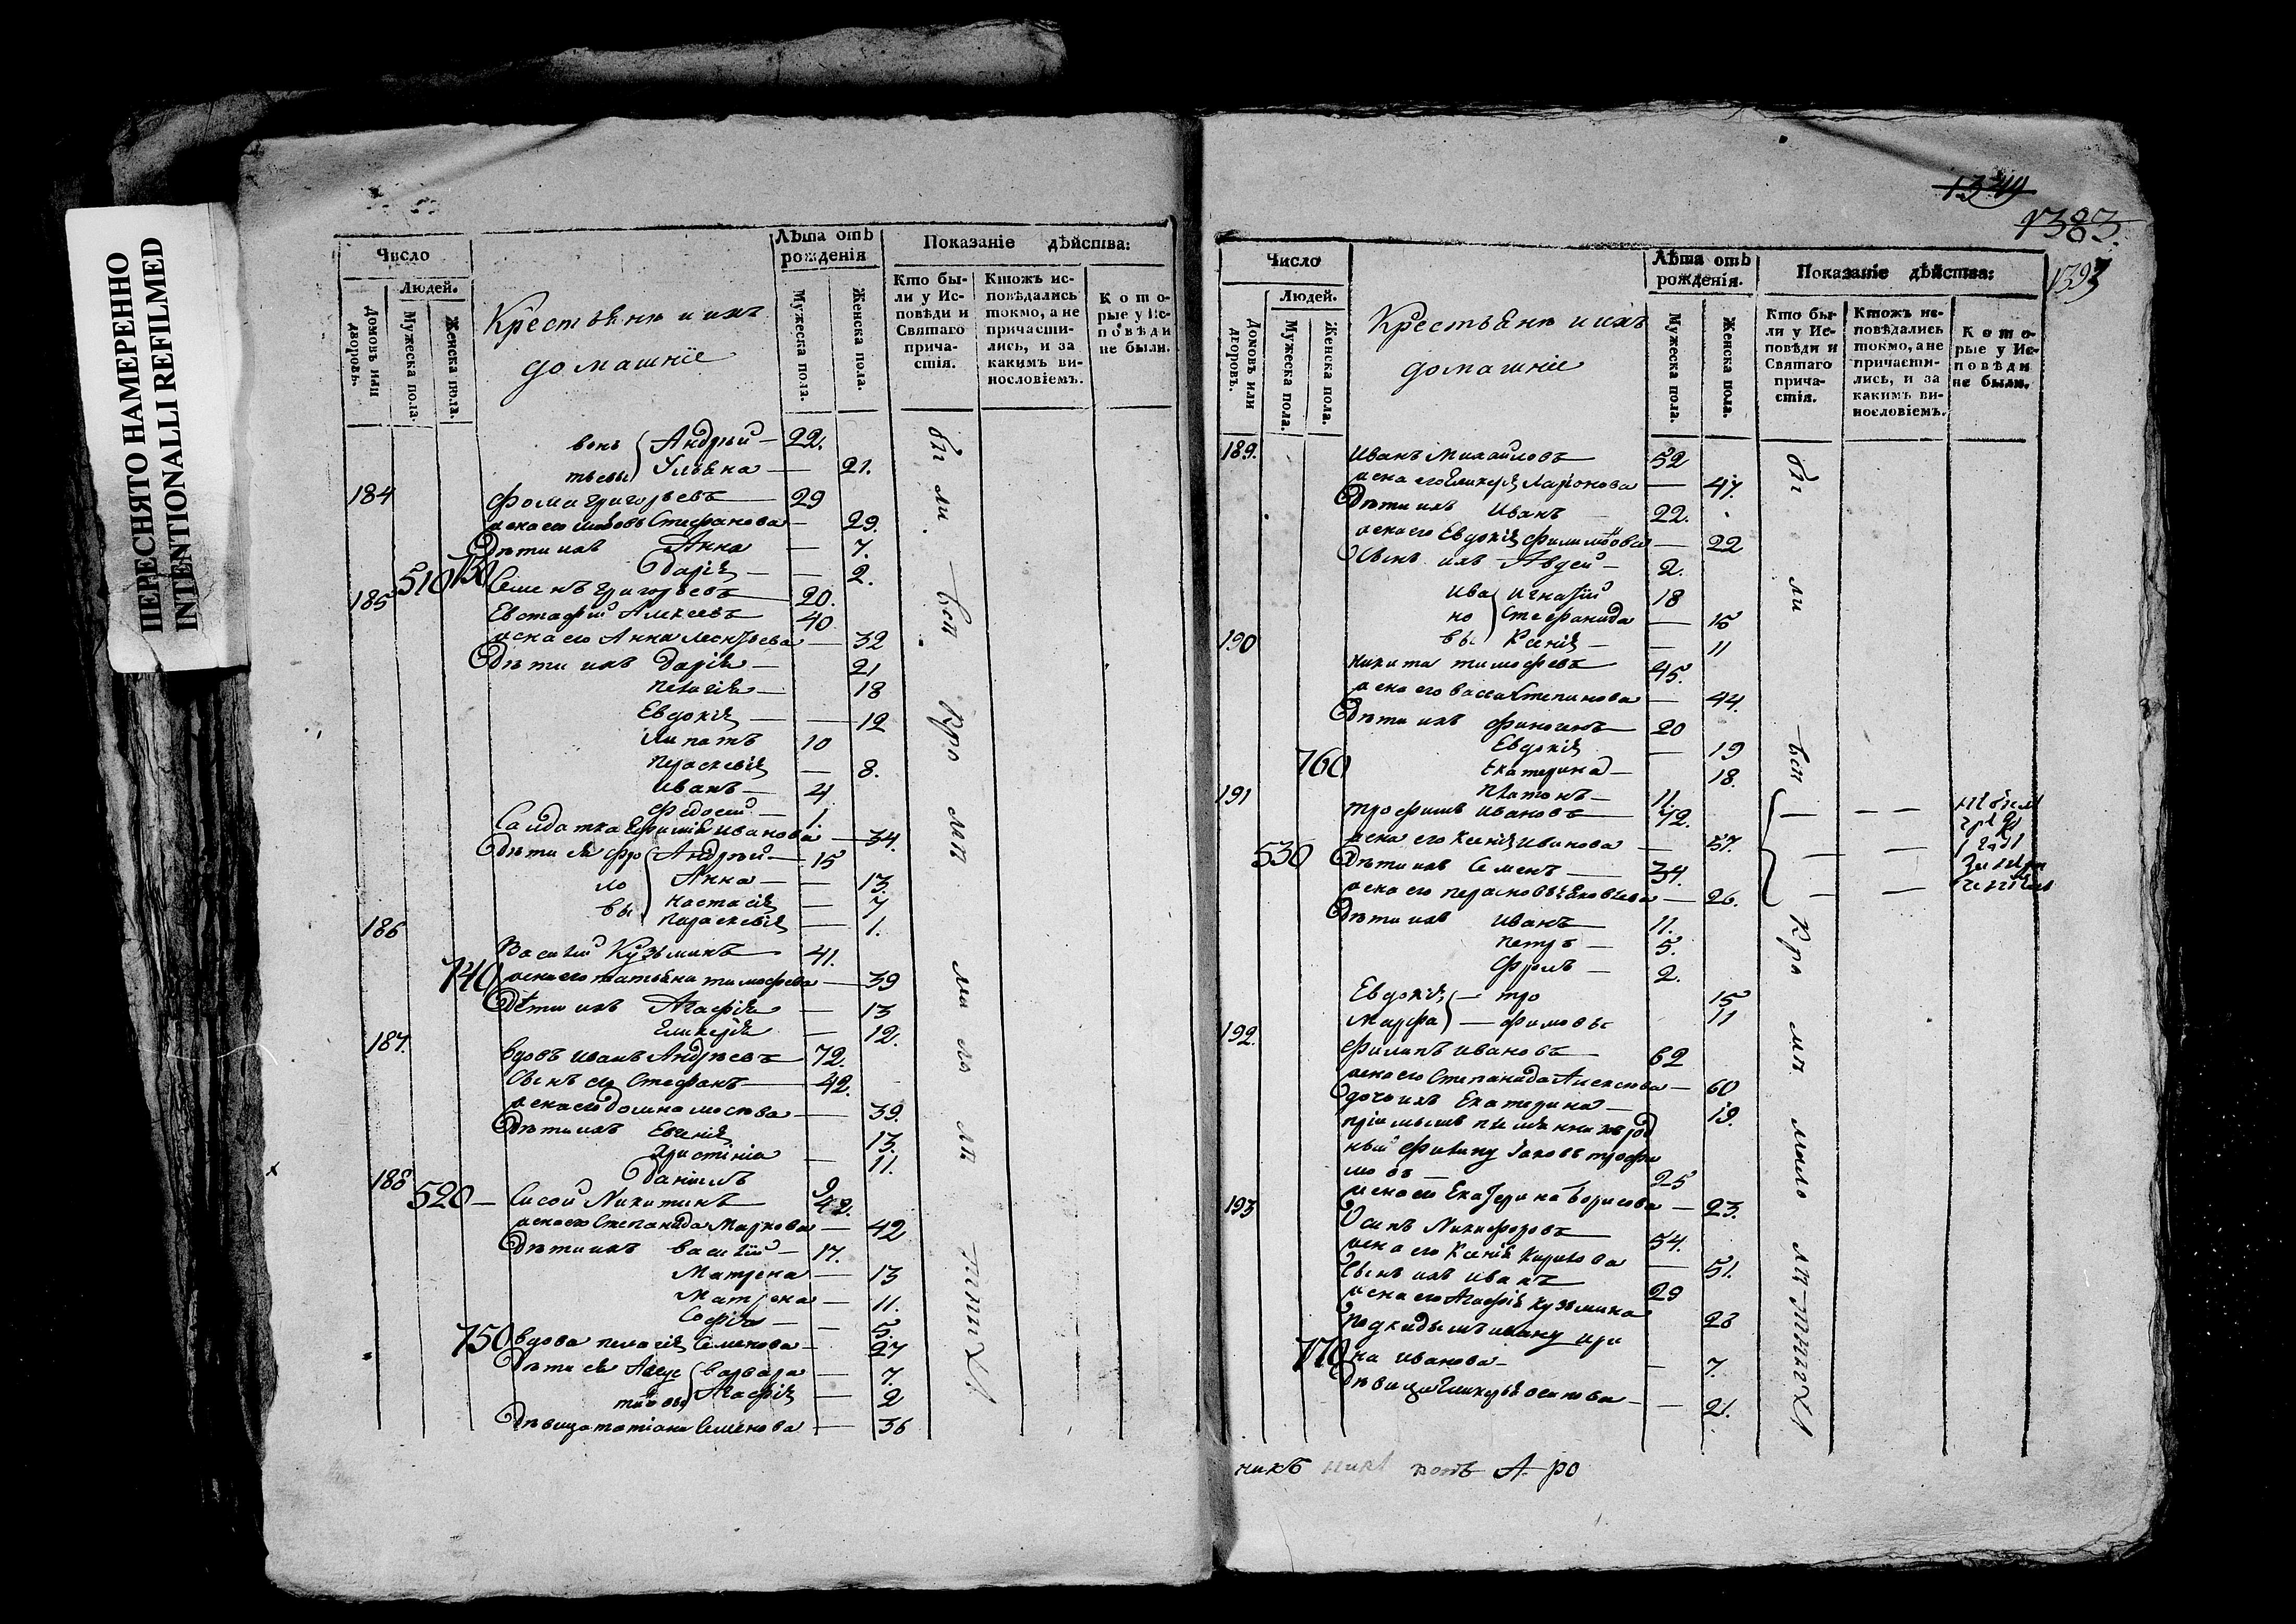 ПЕРЕСНЯТО НАМЕРЕННО
INTENTIONALLI REFILMED
Число
Людей.
Домовъ или дворовъ.
Мужеска пола.
Женска пола.
Крестьяне и ихъ
домашніе
Лѣта отъ рожденія
Мужеска пола.
Женска пола.
Показаніе дѣйства:
Кто были у Исповѣди и Святаго причастія.
Ктожъ исповѣдались токмо, а не причастились, и за какимъ винословіемъ.
Которые у Исповѣди не были.
вонъ Андрѣй 22.
тьевы Ульяна 21.
184 Фома Григорьевъ 29
жена его Любовь Стефанова 29.
Дѣти ихъ Анна 7.
510 730 Дарія 2.
185 Семенъ Григорьевъ 20.
Евстафій Алексеевъ 40
жена его Анна Леонтьева 32
Дѣти ихъ Дарія 21
Пелагія 18
Евдокія 12
Липатъ 10
Праскевія 8.
Иванъ 4
Федосий 1.
Салдатка Ефимія Иванова 34.
Дѣти ея Фро Андрѣй 15
ло Анна 13.
вы Настасія 7
Параскевія 1.
186 Василій Кузьминъ 41.
740 жена его татьяна тимофева 39
Дѣти ихъ Агафія 13
Гликерія 12.
187. Вдовъ Иванъ Андрѣевъ 72.
Сынъ его Стефанъ 42.
жена его Домна мосѣва 39.
Дѣти ихъ Евгенія 13.
Христинія 11.
Даніилъ 9
188 520 Сисой Никитинъ 42.
жена его Степанида Маркова 42
Дѣти ихъ Василій 17.
Матрена 13
Матрена 11.
Софія 5.
750 вдова пелагія Семенова 27
Дѣти ея Авгус Варвара 7.
тиновы Агафія 2
Дѣвица татіана Семенова 36
были всп Кро мѣ ма ло лѣ тныхъ
1349
1383.
1393
Число
Людей.
Домовъ или дворовъ.
Мужеска пола.
Женска пола.
Крестьяне и ихъ
домашніе
Лѣта отъ рожденія.
Мужеска пола.
Женска пола.
Показаніе дѣйства:
Кто были у Исповѣди и Святаго причастія.
Ктожъ исповѣдались токмо, а не причастились, и за какимъ винословіемъ.
Которые у Исповѣди не были.
189. Иванъ Михайловъ 52
жена его Гликерія Ларіонова 47.
Дѣти ихъ Иванъ 22.
жена его Евдокія Филимонова 22
Сынъ ихъ Авдей 2.
Ива Игнатій 18
но Стефанида 15
вы Ксенія 11
190 Никита тимофевъ 45.
жена его васса Степанова 44.
Дѣти ихъ Финогенъ 20
Евдокія 19
760 Екатерина 18.
Платонъ 11.
191 трофимъ Ивановъ 72.
жена его Ксенія Иванова 57.
530 Дѣти ихъ Семенъ 34.
жена его перасковья Яковлева 26.
Дѣти ихъ Иванъ 11.
Петръ 5.
Фролъ 2.
Евдокія тро 15
Марфа фимовы 11
192. Филипъ Ивановъ 62
жена его Степанида Алексеева 60
Дочь ихъ Екатерина 19.
Филипу Іаковъ трофи
мовъ 25
жена его Екатерина Борисова 23.
193 Осипъ Никифоровъ 54.
жена его Ксенія Кирилова 51.
Сынъ ихъ Иванъ 29
жена его Агафія Кузьмина 28
подкидышъ ивану ири
770 на Иванова 7.
Дѣвица Гликерья осипова 21.
были всп Кро мѣ мало лѣтныхъ
никъ попъ А ро